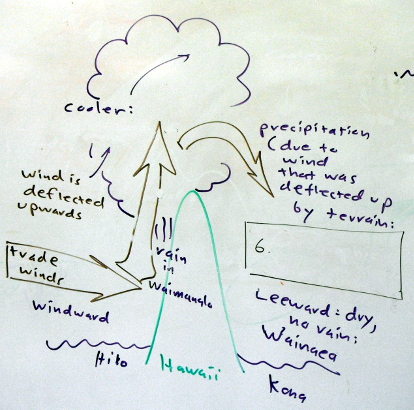 cooler:
precipitation
(due to
wind
that was
deflected up
by terrain:
wind is
deflected
upwards
6.
trade
winds
rain
in
Waimanalo
windward
Leeward: dry,
no rain:
Wainaea
Hilo
Hawaii
Kona